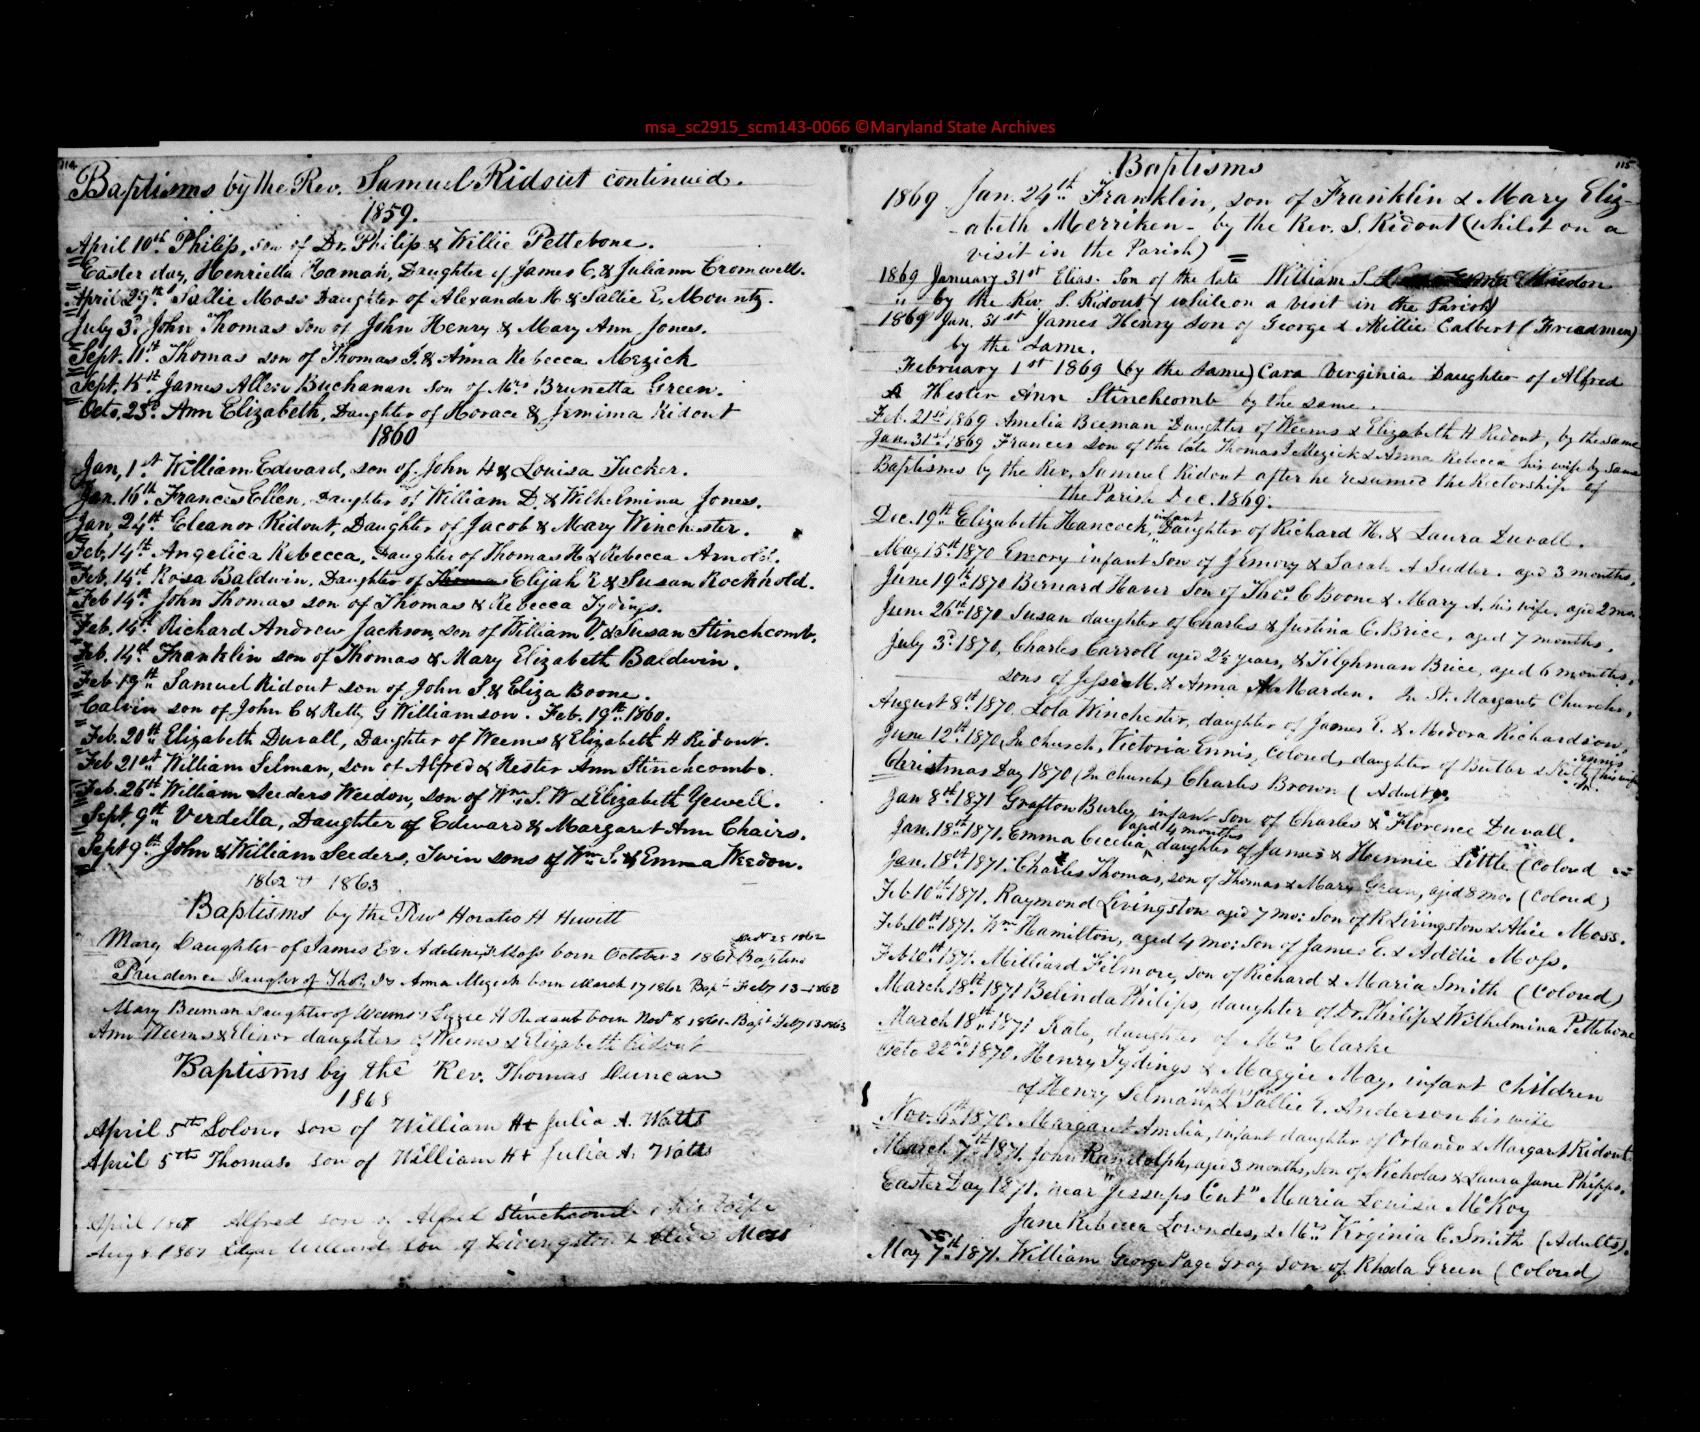 msa_sc2915_scm143-0066 ©Maryland State Archives
114
Baptisms by the Rev. Samuel Ridout continued.
1859.
April 10th Philip, son of Dr. Philip & Willie Pettebone.
Easter day, Henrietta Haman, Daughter of James C. & Juliann Cromwell.
April 29th Sallie Moss Daughter of Alexander H. & Sallie E. Mountz.
July 3d John Thomas son of John Henry & Mary Ann Jones.
Sept. 11th Thomas son of Thomas J. & Anna Rebecca Mezick
Sept. 15th James Allen Buchanan son of Mrs Brunetta Green.
Octo. 23d Ann Elizabeth, Daughter of Horace & Jemima Ridout
1860
Jan, 1st William Edward, son of John H & Louisa Tucker.
Jan. 16th Frances Ellen, Daughter of William D. & Wilhelmina Jones.
Jan 24th Eleanor Ridout, Daughter of Jacob & Mary Winchester.
Feb. 14th Angelica Rebecca, Daughter of Thomas H & Rebecca Arnold.
Feb. 14th Rosa Baldwin, Daughter of Thomas Elijah E & Susan Rockhold.
Feb 14th John Thomas son of Thomas & Rebecca Tydings.
Feb. 14th Richard Andrew Jackson, son of William V. & Susan Stinchcomb.
Feb. 14th Franklin son of Thomas & Mary Elizabeth Baldwin.
Feb 19th Samuel Ridout son of John S. & Eliza Boone.
Calvin son of John C & Retty G Williamson. Feb. 19th 1860.
Feb. 20th Elizabeth Duvall, Daughter of Weems & Elizabeth H Ridout.
Feb 21st William Selman, son of Alfred & Hester Ann Stinchcomb.
Feb. 26th William Seeders Weedon, son of Wm S. W & Elizabeth Yewell.
Sept. 9th Verdella, Daughter of Edward & Margaret Ann Chairs.
Sept 9th John & William Seeders, Twin sons of Wm S. & Emma Weedon.
1862 & 1863
Baptisms by the Revd Horatio H Hewitt
Mary Daughter of James E & Adeline Moss born October 2 1861 Baptised 1862
Prudence Daughter of Thos. J & Anna Mezick born March 17 1862 Bapt Feby 13 1863
Mary Beeman Daughter of Weems & Lizzie H Ridout born Novr 8 1861 Bapt Feby 13 1863
Ann Weems & Elinor daughters of Weems & Elizabeth Ridout
Baptisms by the Rev. Thomas Duncan
1868
April 5th Solon. son of William H & Julia A. Watts
April 5th Thomas. son of William H & Julia A. Watts
April 1867 Alfred son of Alfred Stinchcomb & his wife
Aug 8. 1867 Edgar Willard son of Livingston & Alice Moss
115
Baptisms
1869 Jan. 24th Franklin, son of Franklin & Mary Eliz-
abeth Merriken - by the Rev. S. Ridout (whilst on a
visit in the Parish)
1869 January 31st Elias. Son of the late William S Weedon
" by the Rev S. Ridout (while on a visit in the Parish)
1869 Jan. 31st James Henry son of George & Millie Calbert (Freedmen)
by the same.
February 1st 1869 (by the same) Cara Virginia Daughter of Alfred
& Hester Ann Stinchcomb by the same.
Feb. 21st 1869 Amelia Beeman Daughter of Weems & Elizabeth H Ridout, by the same
Jan. 31st 1869 Frances son of the late Thomas J Mezick & Anna Rebecca his wife by same
Baptisms by the Rev. Samuel Ridout after he resumed the Rectorship of
the Parish Dec. 1869.
Dec. 19th Elizabeth Hancock, infant Daughter of Richard H. & Laura Duvall.
May 15th 1870 Emory infant Son of J Emory & Sarah A Sudler. aged 3 months,
June 19th 1870 Bernard Haver Son of Thos. C Boone & Mary A. his wife. aged 2 mo.
June 26th 1870 Susan daughter of Charles & Justina C. Brice, aged 7 months.
July 3d 1870, Charles Carroll aged 2½ years, & Tilghman Brice, aged 6 months,
sons of Jesse M. & Anna M. Marden. In St. Margarets Church.
August 8th 1870. Lola Winchester, daughter of James E. & Medora Richardson.
June 12th 1870, In church, Victoria Ennis, colored, daughter of Butler & Kitty Ennis his wife
Christmas Day 1870 (In church) Charles Brown (Adult).
Jan 8th 1871 Grafton Burley infant Son of Charles & Florence Duvall.
Jan. 18th 1871. Emma Cecelia, aged 4 months daughter of James & Hennie Little (colored
Jan. 18th 1871. Charles Thomas, son of Thomas & Mary Green, aged 8 mo. (Colored)
Feb 10th 1871. Raymond Livingston aged 7 mo: Son of R Livingston & Alice Moss.
Feb. 10th 1871. Wm Hamilton, aged 4 mo: Son of James E. & Addie Moss.
Feb 10th 1871. Milliard Filmore, son of Richard & Maria Smith (Colored)
March 18th 1871 Belinda Philips, daughter of Dr. Philip & Wilhelmina Pettebone
March 18th 1871 Kate, daughter of Mrs Clarke
Octo 22nd 1870 Henry Tydings & Maggie May, infant children
of Henry Selman Anderson & Sallie E. Anderson his wife
Nov. 6th 1870. Margaret Amelia, infant daughter of Orlando & Margaret Ridout.
March 7th 1871. John Randolph, aged 3 months, son of Nicholas & Laura Jane Phipps.
Easter Day 1871. near "Jessups Cut" Maria Louisa McKoy
Jane Rebecca Lowndes, & Mrs Virginia C. Smith (Adults).
May 7th 1871. William George Page Gray son of Rhoda Green (Colored)